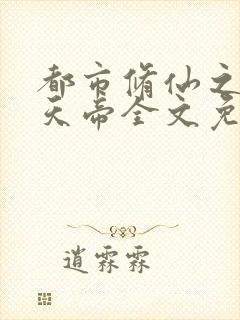 都市脩仙之
天帝全文免
逍霖霖